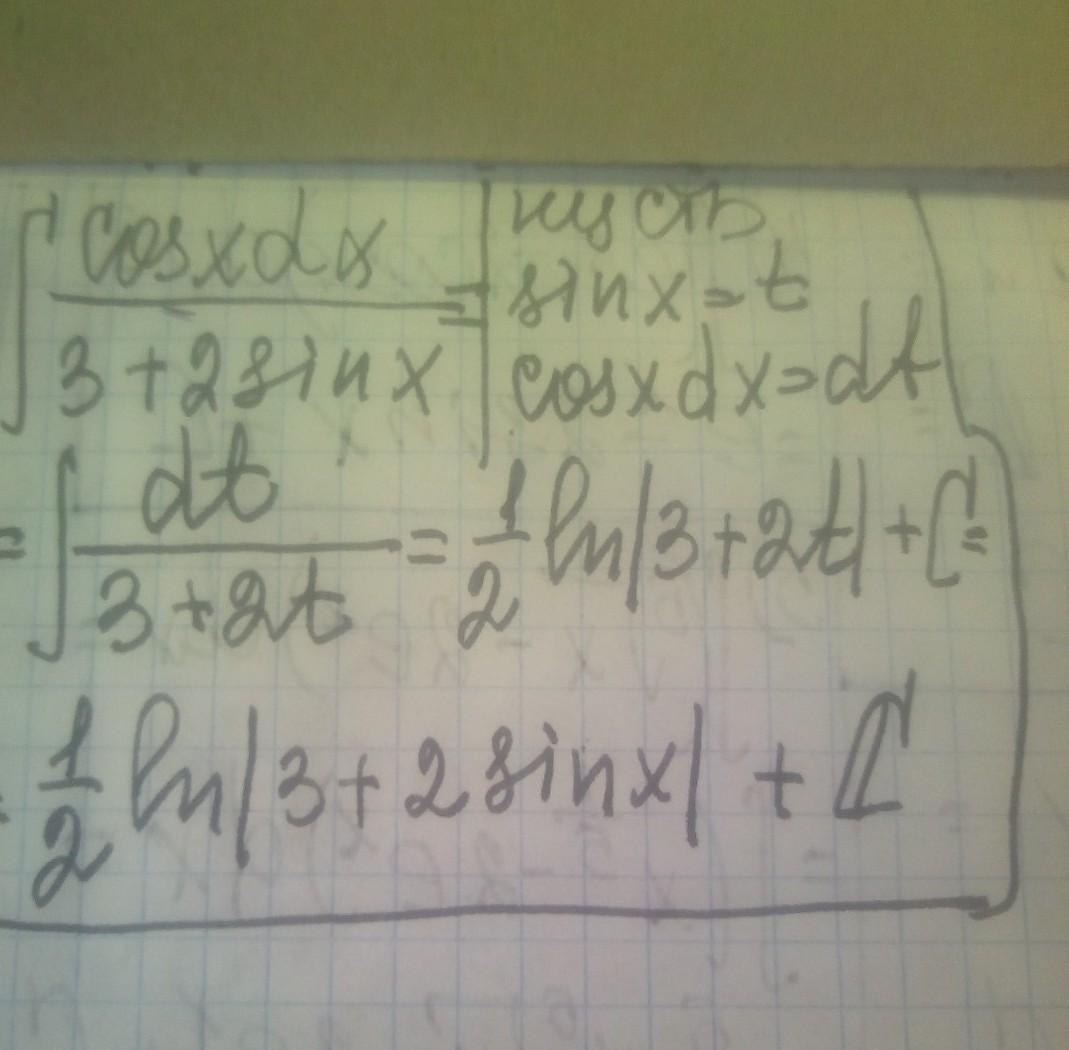 ∫ cosxdx / 3+2sinx = | пусть
sinx=t
cosxdx=dt
= ∫ dt / 3+2t = 1/2 ln|3+2t| + C =
= 1/2 ln|3+2sinx| + C